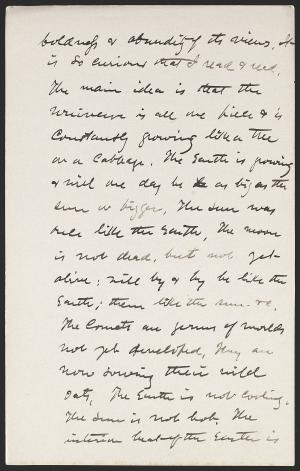 boldness & absurdity of its views. It
is so curious that I read & read.
The main idea is that the
Universe is all one piece & is
constantly growing like a tree
or a cabbage. The Earth is growing
& will one day be as big as the
sun or bigger. The sun was
once like the Earth. The moon
is not dead, but not yet
alive; will by & by be like the
Earth; then like the sun &c.
The Comets are germs of worlds
not yet developed, they are
now sowing their wild
oats. The Earth is not cooling.
The Sun is not hot. The
interior heat of the Earth is